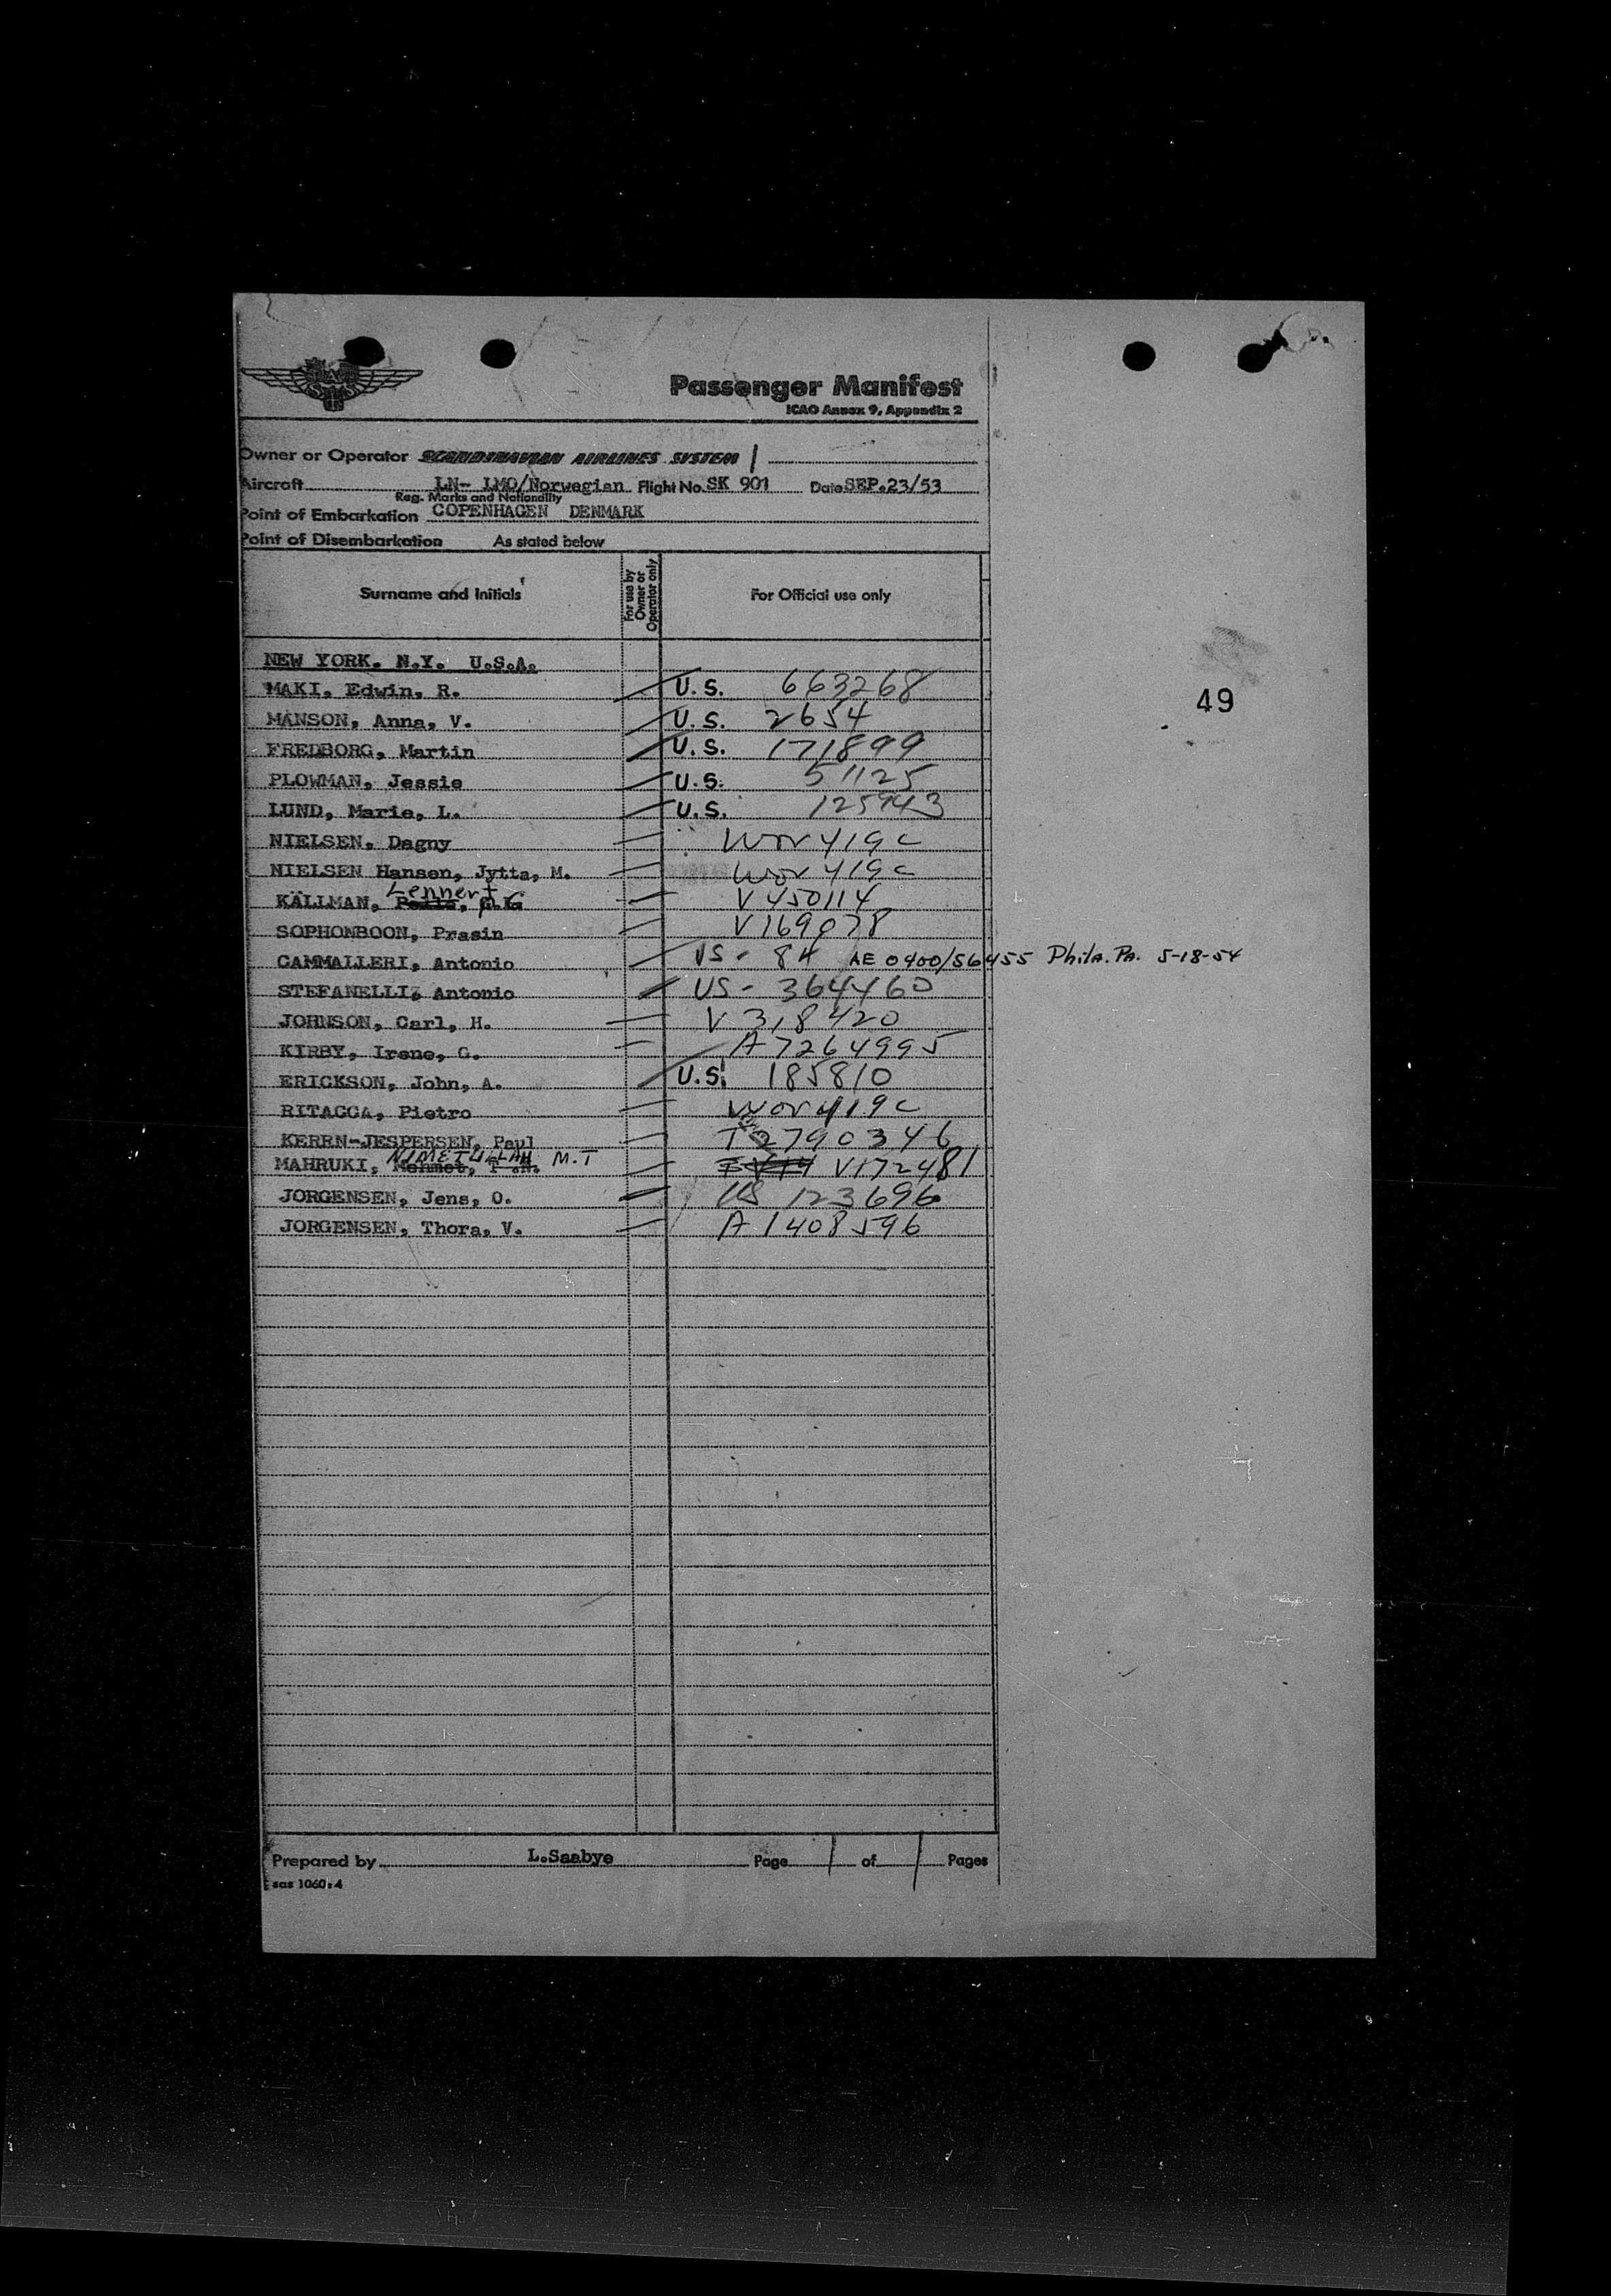 SAS
Passenger Manifest
ICAO Annex 9, Appendix 2
Owner or Operator SCANDINAVIAN AIRLINES SYSTEM
Aircraft LN- LMO/Norwegian Flight No. SK 901 Date SEP.23/53
Reg. Marks and Nationality
Point of Embarkation COPENHAGEN DENMARK
Point of Disembarkation As stated below
Surname and Initials For use by Owner or Operator only For Official use only
NEW YORK. N.Y. U.S.A.
MAKI, Edwin, R. U.S. 663268
49
MANSON, Anna, V. U.S. 2654
FREDBORG, Martin U.S. 171899
PLOWMAN, Jessie U.S. 51125
LUND, Marie, L. U.S. 125943
NIELSEN, Dagny Wov 419c
NIELSEN Hansen, Jytta, M. Wov 419c
Lennert
KÄLLMAN, G. V450114
SOPHONBOON, Prasin V169078
CAMMALLERI, Antonio US - 84 AE 0400/56455 Phila. Pa. 5-18-54
STEFANELLI, Antonio US - 364460
JOHNSON, Carl, H. V 318420
KIRBY, Irene, G. A7264995
ERICKSON, John, A. U.S. 185810
RITACCA, Pietro Wov 419c
KERRN-JESPERSEN, Paul T2790346
NIMETULLAH M.T
MAHRUKI, Mehmet, T.N. V172481
JORGENSEN, Jens, O. US 123696
JORGENSEN, Thora, V. A1408596
Prepared by L.Saabye Page 1 of 1 Pages
sas 1060:4